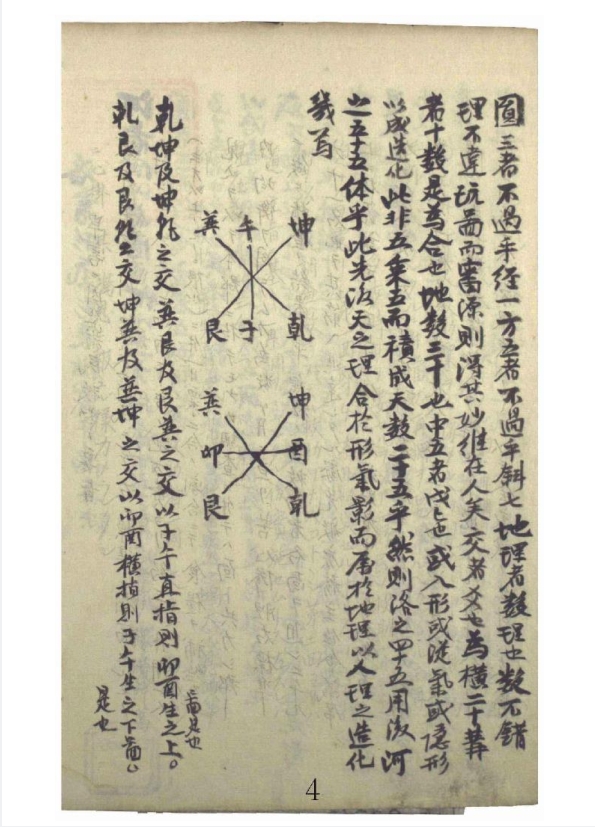 圓三者不過乎徑一方五者不過乎斜七地理者數理也數不錯
理不違玩啚而審源則淂其妙在人矣交者爻也為橫二十冓
者十數是為合也地數三十也中五者戊己也或入形或從氣或隱形
以成造化此非五乘五而積成天數二十五乎然則洛之四十五用後河
之五十五体乎此先後天之理合扵形氣影而屬扵地理以人理之造化
幾為
巽 午 坤
艮 子 乾
巽 坤
卯 酉
艮 乾
乾坤及坤乾之交巽艮及艮巽之交以子午直指則卯酉生之上
啚是也
乾艮及艮乾之交坤巽及巽坤之交以卯酉橫指則子午生之下啚
是也
4